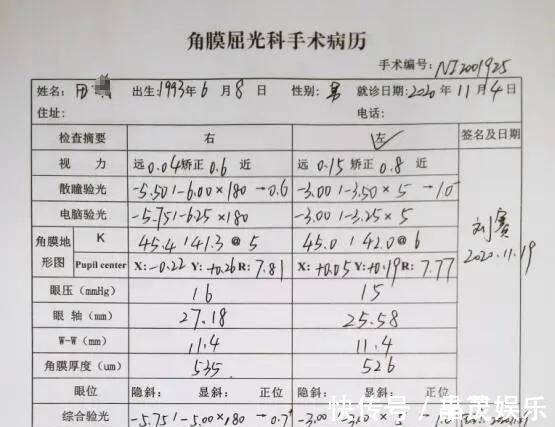 角膜屈光科手术病历
手术编号: NJ2001925
姓名: 田 出生: 1993年 6 月 8 日 性别: 男 就诊日期: 2020 年 11 月 4 日
住址: 电话:
检查摘要 右 左 签名及日期
视 力 远 0.04 矫正 0.6 近 远 0.15 矫正 0.8 近
散瞳验光 -5.50/-6.00×180→0.6 -3.00/-3.50×5→1.0
电脑验光 -5.75/-6.25×180 -3.00/-3.25×5
角膜地形图 K 45.4/41.3@5 45.0/42.0@6
Pupil center X:-0.22 Y:+0.26 R:7.81 X:+0.05 Y:+0.19 R:7.77
刘赛
2020.11.19
眼压(mmHg) 16 15
眼 轴 (mm) 27.18 25.58
W-W (mm) 11.4 11.4
角膜厚度(um) 535 526
眼位 隐斜: 显斜: 正位 隐斜: 显斜: 正位
综合验光 -5.75/-5.00×180→0.7+ -3.00
快传号/
娱乐